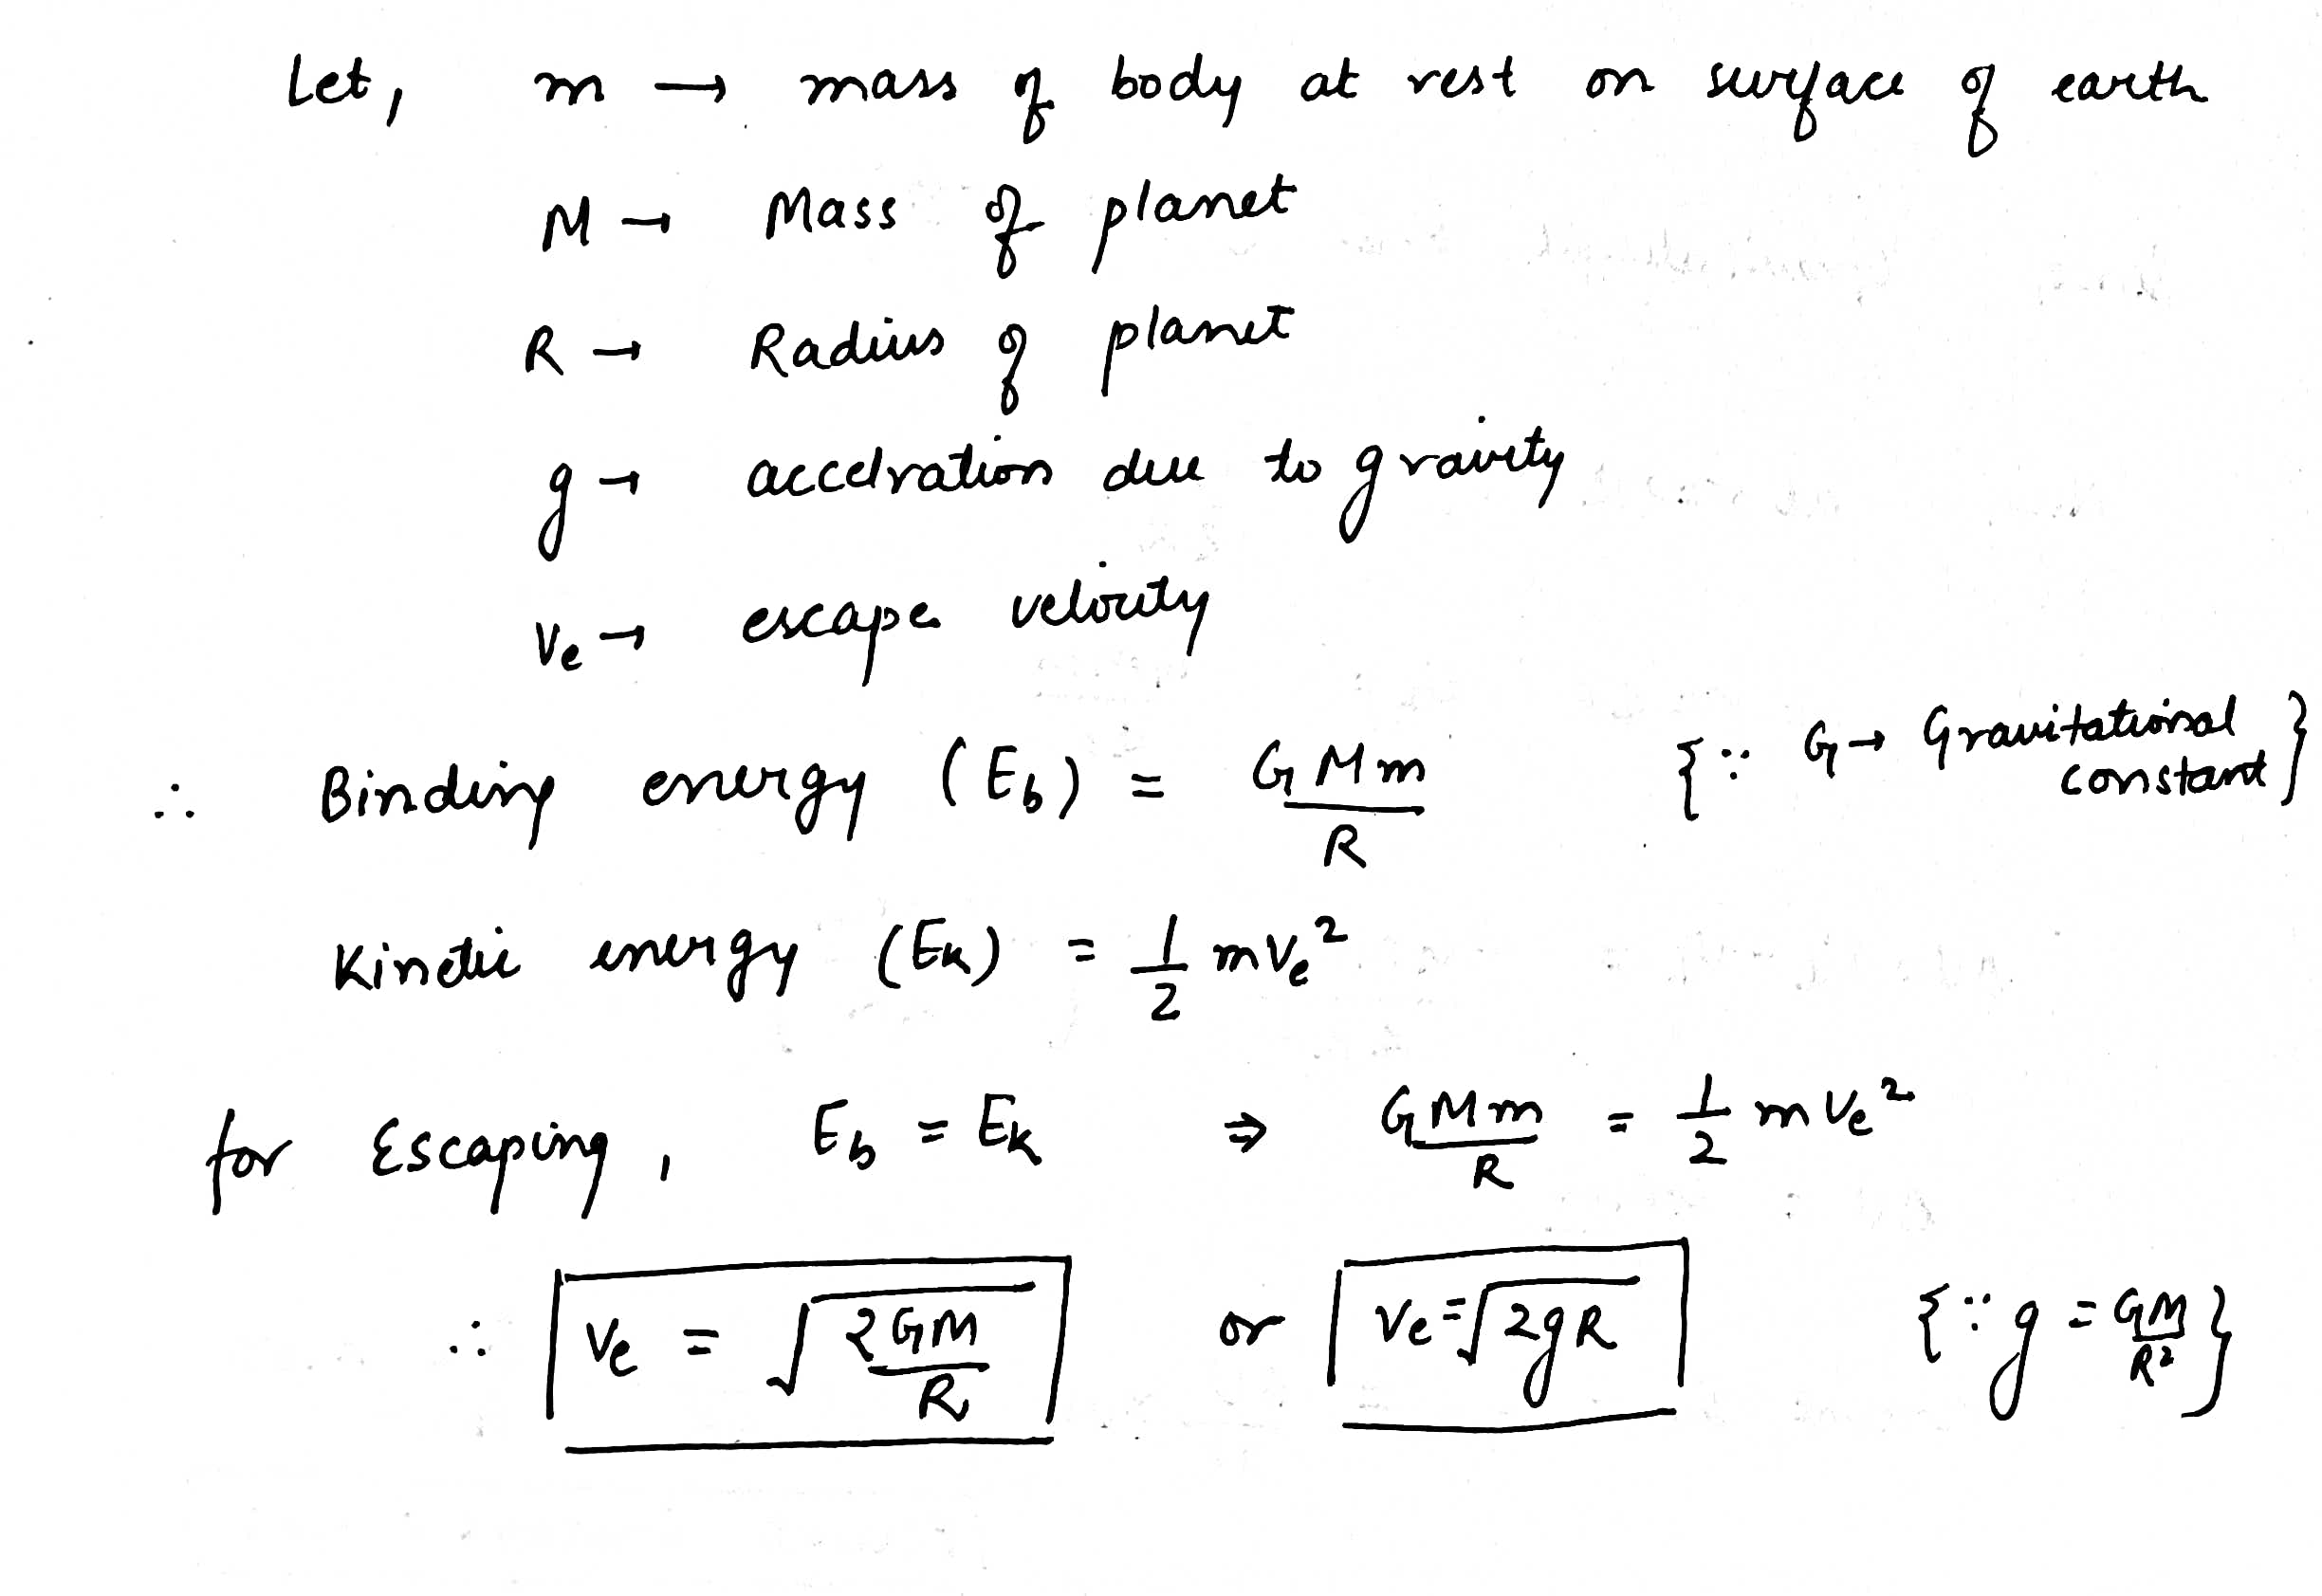 Let, m → mass of body at rest on surface of earth
M → Mass of planet
R → Radius of planet
g → accelration due to gravity
Ve → escape velocity
∴ Binding energy (Eb) = GMm/R {∵ G → Gravitational constant}
Kinetic energy (Ek) = 1/2 mVe²
for Escaping, Eb = Ek ⇒ GMm/R = 1/2 mVe²
∴ Ve = √(2GM/R) or Ve = √2gR {∵ g = GM/R²}